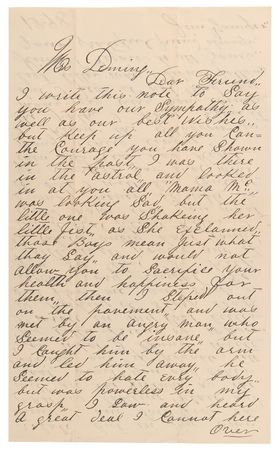 Mr Dming,
Dear Friend,,
I write this note to Say
you have our Sympathy as
well as our best Wishes,,
but keep up all you Can
the Courage you have Shown
in the past, I was there
in the astral and looked
in at you all "Mama Mc.,,
was looking Sad but the
little one was Shaking her
little fist, as She Exclaimed,
those Boys mean Just what
thay Say,, and would not
allow you to Sacrifice your
health and happiness for
them,, then I Steped out
on the pavement, and was
met by an angry man, who
Seemed to be insane, but
I Caught him by the arm
and led him away, he
Seemed to hate evry body,,
but was powerless in my
grasp, I Saw and heard
a great deal I Cannot here
Over